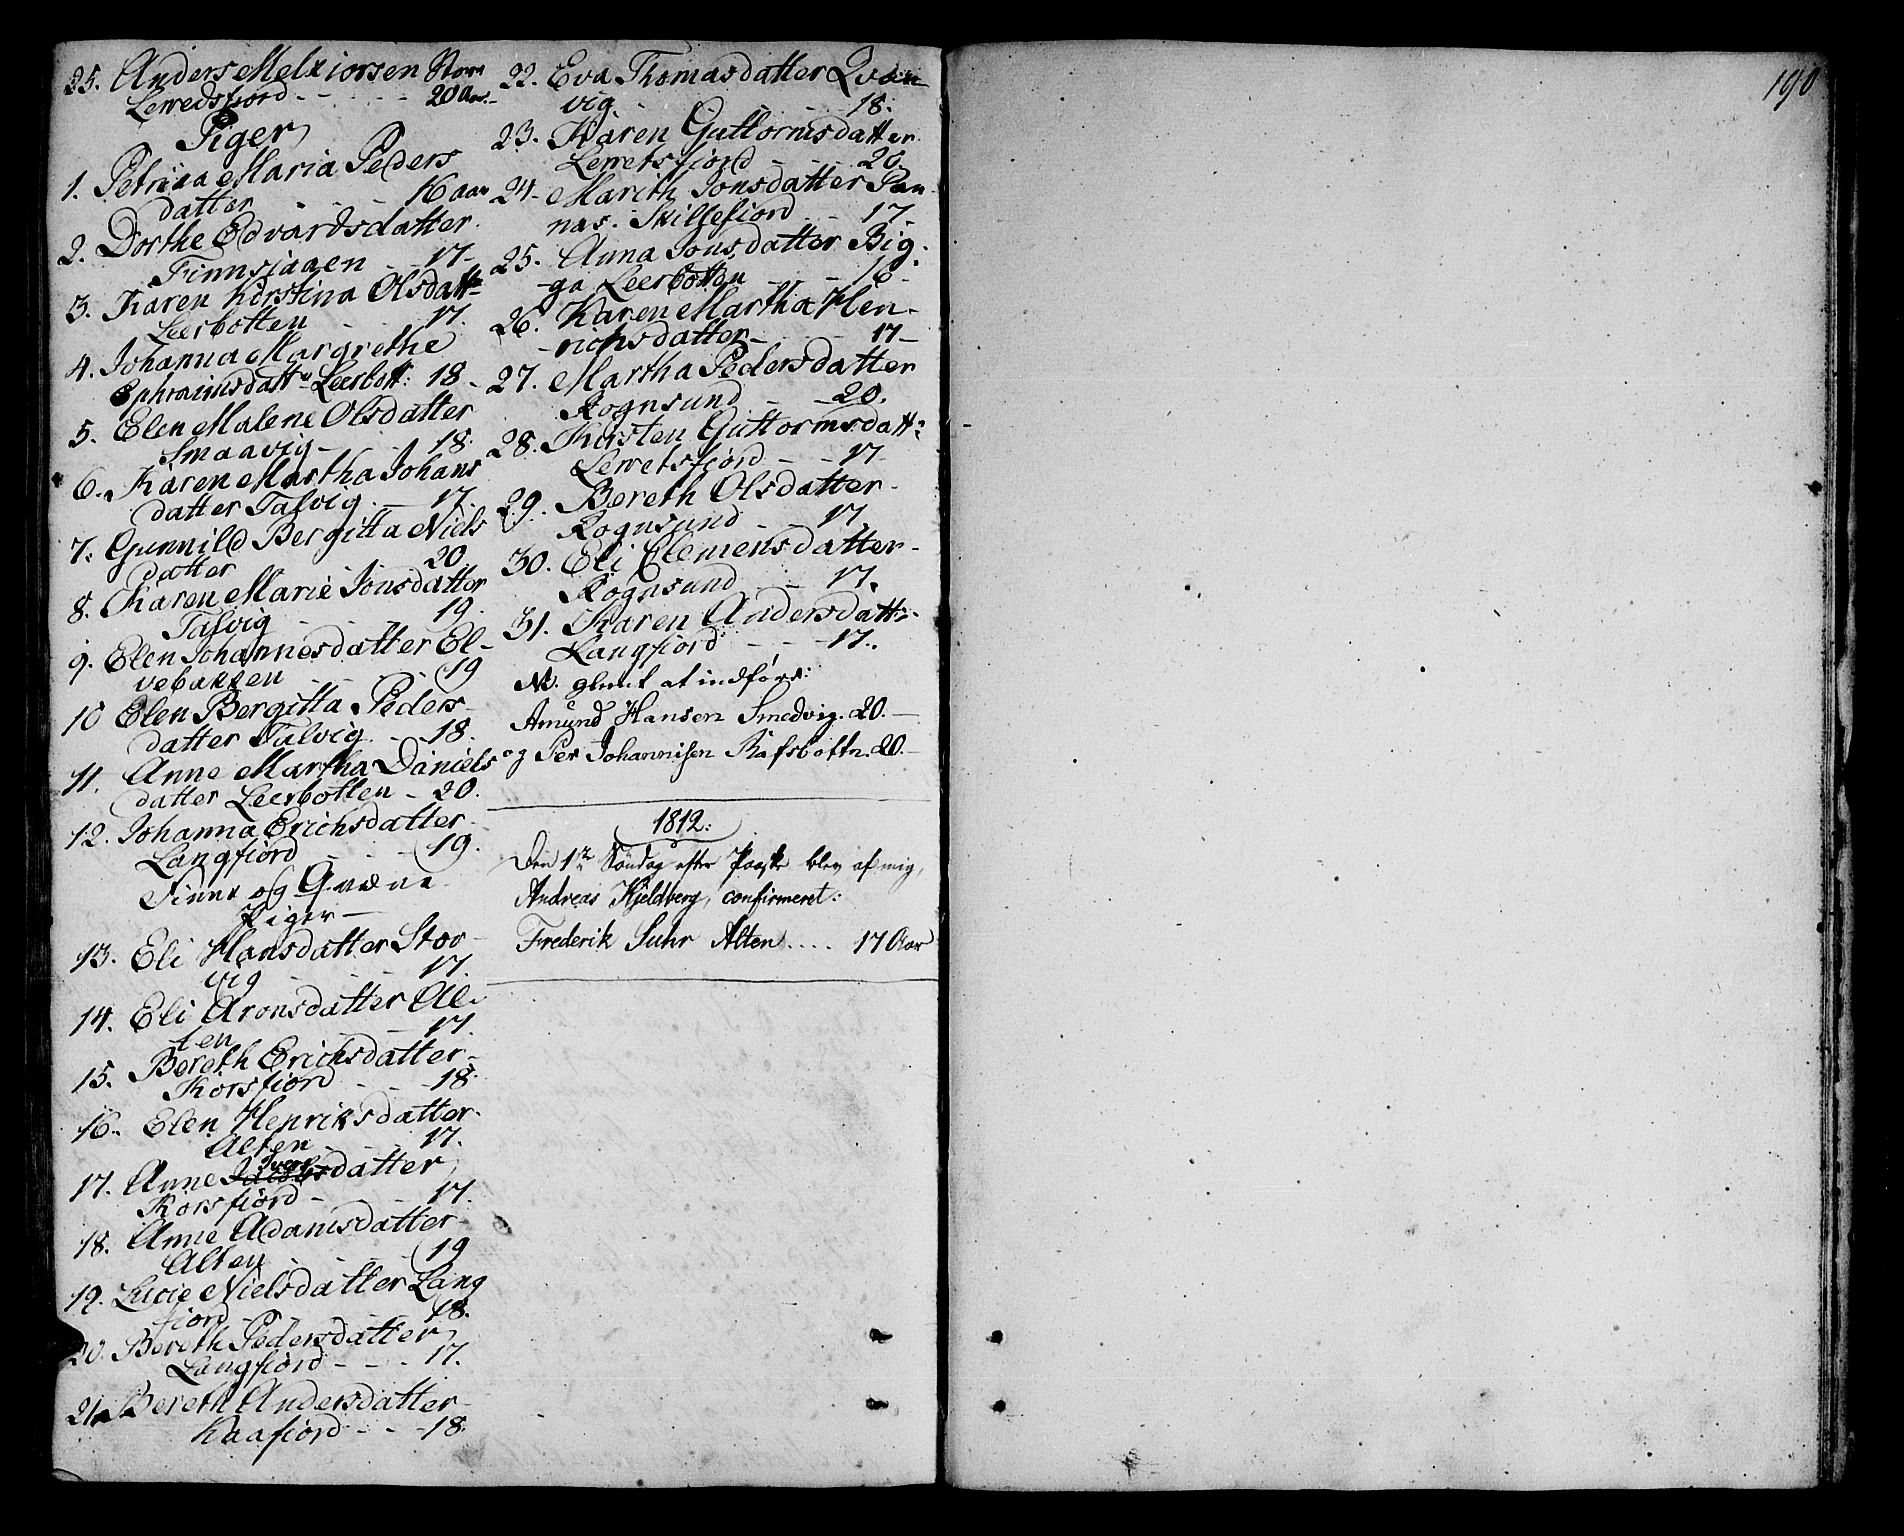 25. Anders Melxiorsen Store
Lerredsfiord - - - 20 Aar.
Piger
1. Petrina Maria Peders
datter 16 aar
2. Dorthe Edvardsdatter
Finnsjaaen - - 17 -
3. Karen Kirstina Olsdattr
Leerbotten - - 17.
4. Johanna Margrethe
Ephraimsdattr Leerbott: 18 -
5. Elen Malene Olsdatter
Smaavig - - 18.
6. Karen Martha Johans
datter Talvig - 17.
7. Gunnild Bergitta Niels
datter 20
8. Karen Marie Jonsdatter
Talvig - - - 19.
9. Elen Johannesdatter El-
vebakken - - 19
10 Elen Bergitta Peders-
datter Talvig - - 18.
11. Anne Martha Daniels
datter Leerbotten - 20.
12. Johanna Erichsdatter
Langfiord - - - 19.
Finne og Qvæne
Piger -
13. Eli Hansdatter Stor
vig - - - 17.
14. Eli Aronsdatter Al-
ten - - - 17.
15. Bereth Erichsdatter -
Korsfiord - - - 18.
16. Elen Henriksdatter
Alten - - - 17.
17. Anne Iversdatter
Korsfiord - - - 17.
18. Anne Adamsdatter
Alten - - - 19
19. Lucie Nielsdatter Lang
fiord - - - 18.
20. Bereth Pedersdatter
Langfiord - - - 17.
21. Bereth Andersdatter -
Kaafiord - - - 18.
22. Eva Thomasdatter Qvæn
vig - - - 18.
23. Karen Guttormsdatter
Lerretsfiord - - - 20.
24. Marith Jonsdatter Pan-
nas. Skillefiord - - 17 -
25. Anna Jonsdatter Big-
ga Leerbotten - - 16 -
26. Karen Martha Hen-
richsdatter - - - 17 -
27. Martha Pedersdatter
Rognsund - - 20.
28. Kirsten Guttormsdattr
Lerretsfiord - - 17
29. Bereth Olsdatter -
Rognsund - - 17.
30. Eli Clemensdatter -
Rognsund - - 17.
31. Karen Andersdattr
Langfiord - - - 17.
Nb. glemt at indføre:
Amund Hansen Smedvig. 20. -
og Per Johannisen Rafsbottn. 20. -
1812:
Den 1te Søndag efter Paaske blev af mig,
Andreas Kjeldberg, confirmeret:
Frederik Suhr Alten .... 17 Aar
190